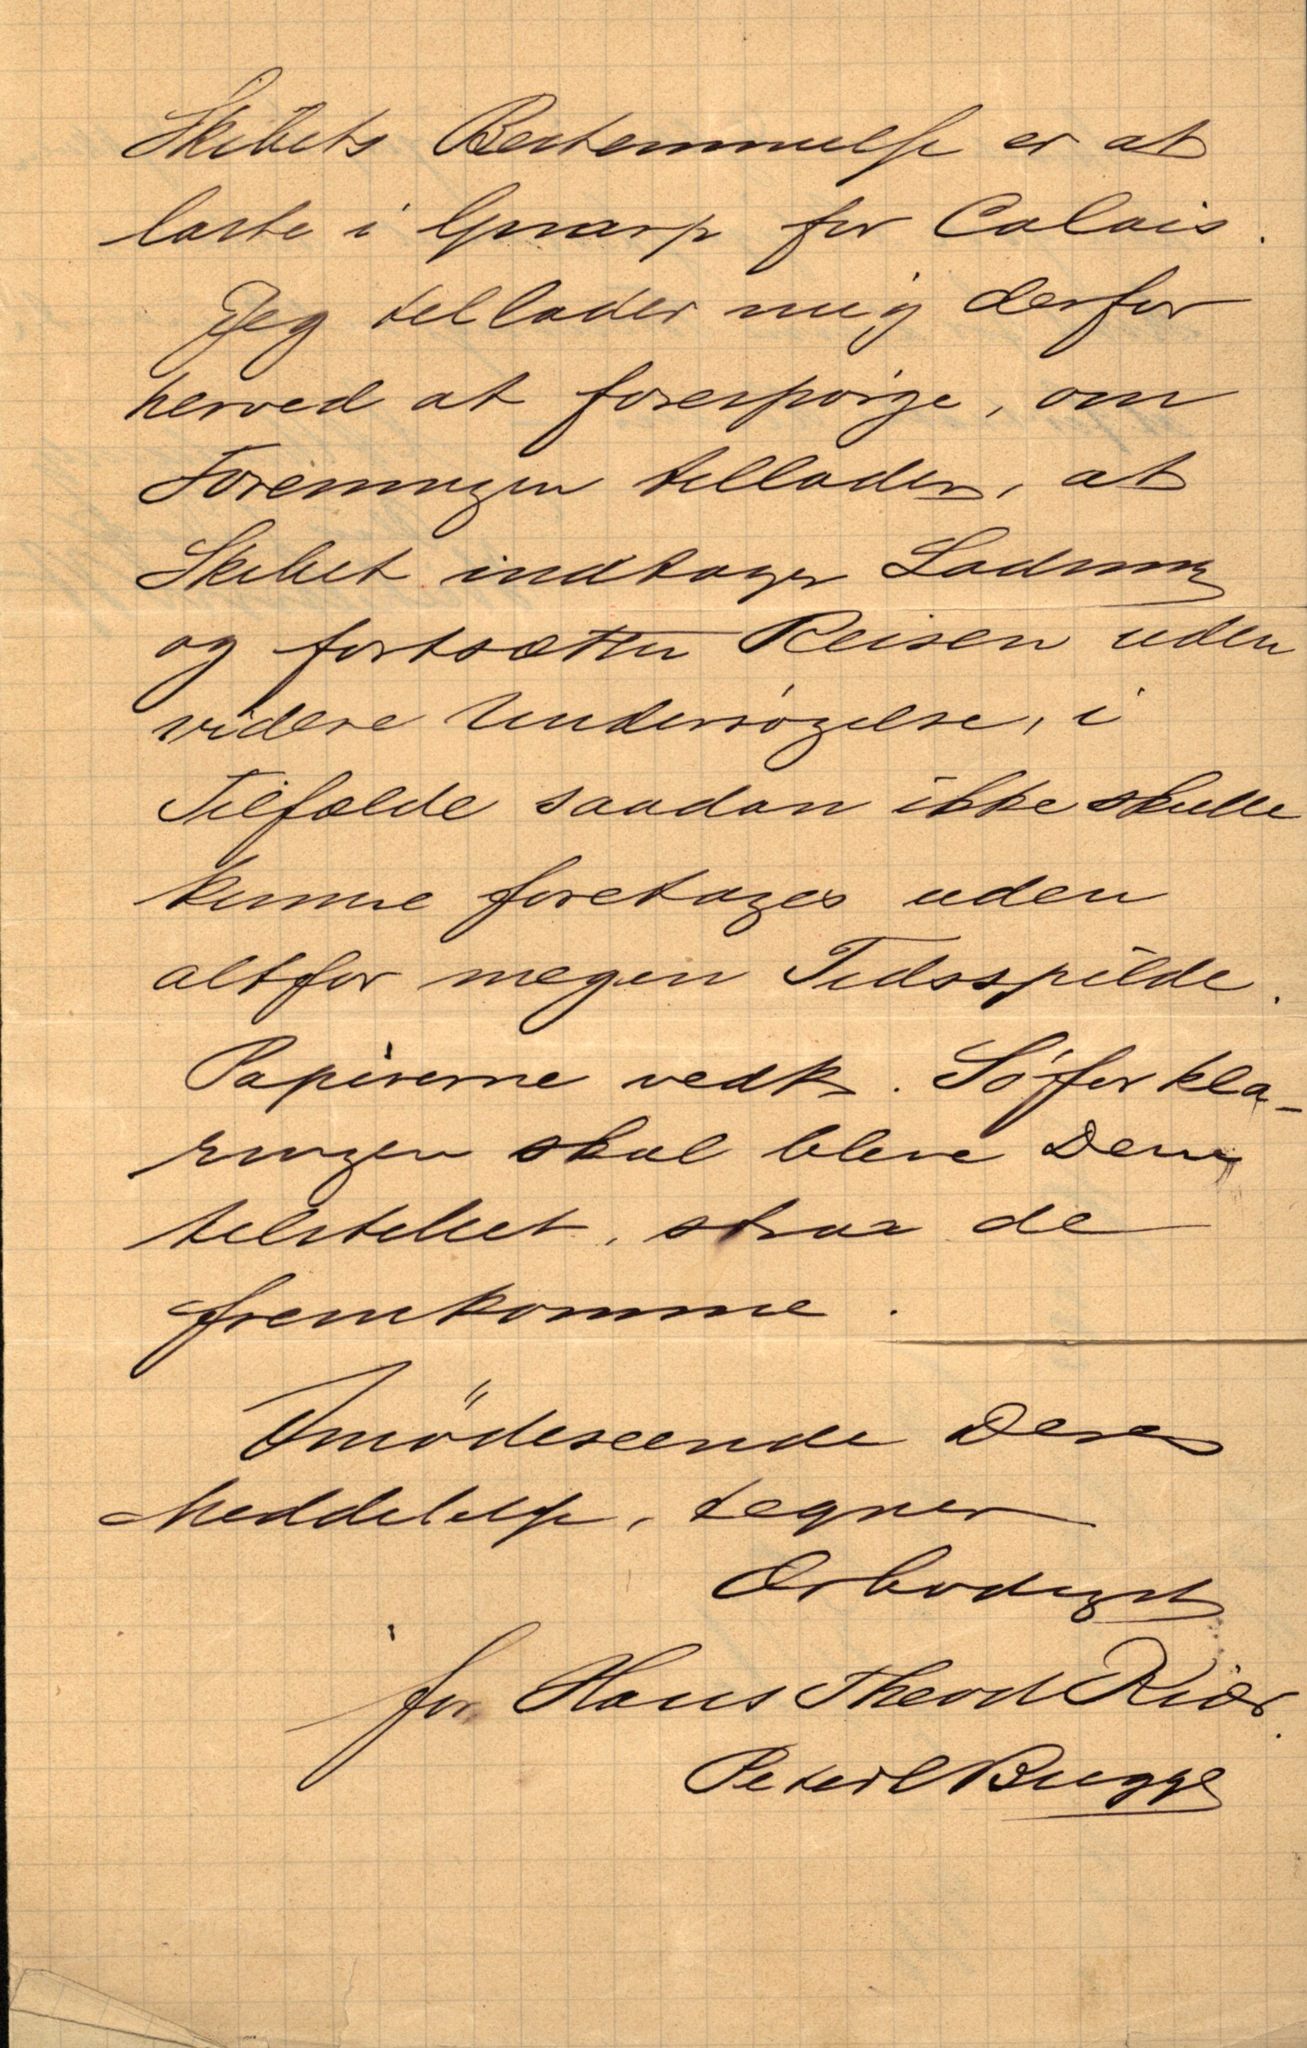 Skibets Bestemmelse er at
laste i Gnarp for Calais.
Jeg tillader mig derfor
herved at forespørge, om
Foreningen tillader, at
Skibet indtager Ladning
og fortsætter Reisen uden
videre Undersøgelse, i
Tilfælde saadan ikke skulde
kunne foretages uden
altfor megen Tidsspilde.
Papirerne vedk. Søforkla-
ringen skal blive Dem
tilstillet, strax de
fremkomme.
Imødeseende Deres
Meddelelse, tegner
Ærbødigst
for Hans Theod Kiær.
Peter C Bugge